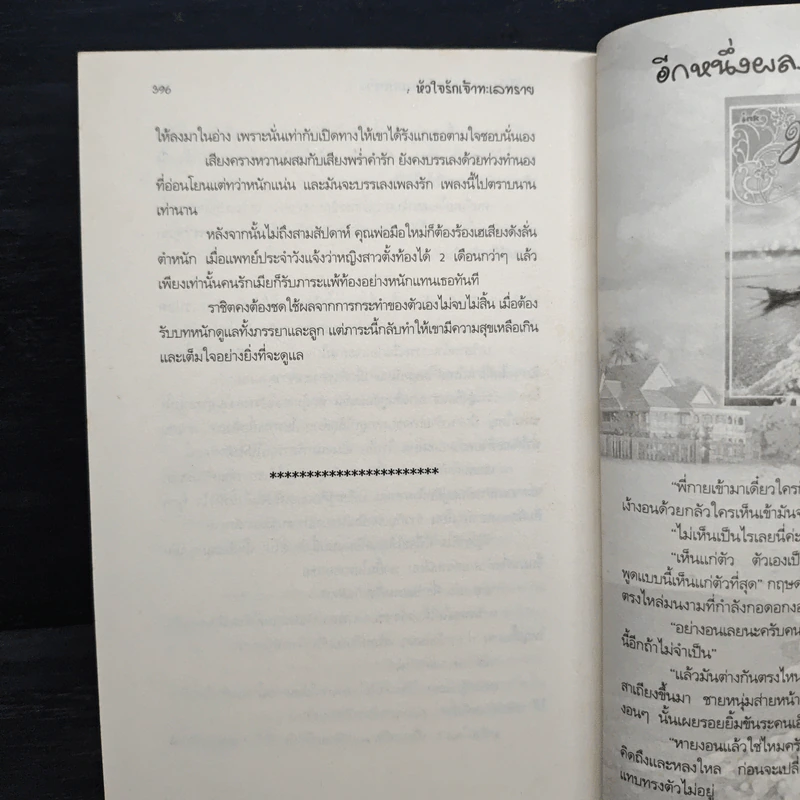 396
หัวใจรักเจ้าทะเลทราย
ให้ลงมาในอ่าง เพราะนั่นเท่ากับเปิดทางให้เขาได้รังแกเธอตามใจชอบนั่นเอง
เสียงครางหวานผสมกับเสียงพร่ำคำรัก ยังคงบรรเลงด้วยท่วงทำนอง
ที่อ่อนโยนแต่ทว่าหนักแน่น และมันจะบรรเลงเพลงรัก เพลงนี้ไปตราบนาน
เท่านาน
หลังจากนั้นไม่ถึงสามสัปดาห์ คุณพ่อมือใหม่ก็ต้องร้องเฮเสียงดังลั่น
ตำหนัก เมื่อแพทย์ประจำวังแจ้งว่าหญิงสาวตั้งท้องได้ 2 เดือนกว่าๆ แล้ว
เพียงเท่านั้นคนรักเมียก็รับภาระแพ้ท้องอย่างหนักแทนเธอทันที
ราชิตคงต้องชดใช้ผลจากการกระทำของตัวเองไม่จบไม่สิ้น เมื่อต้อง
รับบทหนักดูแลทั้งภรรยาและลูก แต่ภาระนี้กลับทำให้เขามีความสุขเหลือเกิน
และเต็มใจอย่างยิ่งที่จะดูแล
************************
อีกหนึ่งผลง
"พี่กายเข้ามาเดี๋ยวใคร
เง้างอนด้วยกลัวใครเห็นเข้ามัน
"ไม่เห็นเป็นไรเลยนี่ค่ะ
"เห็นแก่ตัว ตัวเองเป็
พูดแบบนี้เห็นแก่ตัวที่สุด" กฤษด
ตรงไหล่มนงามที่กำลังกอดกอง
"อย่างอนเลยนะครับคน
นี้อีกถ้าไม่จำเป็น"
"แล้วมันต่างกันตรงไหน
สาเถียงขึ้นมา ชายหนุ่มส่ายหน้า
งอนๆ นั้นเผยรอยยิ้มขันระคนเอ็
"หายงอนแล้วใช่ไหมครั
คิดถึงและหลงใหล ก่อนจะเปลี่
แทบทรงตัวไม่อยู่